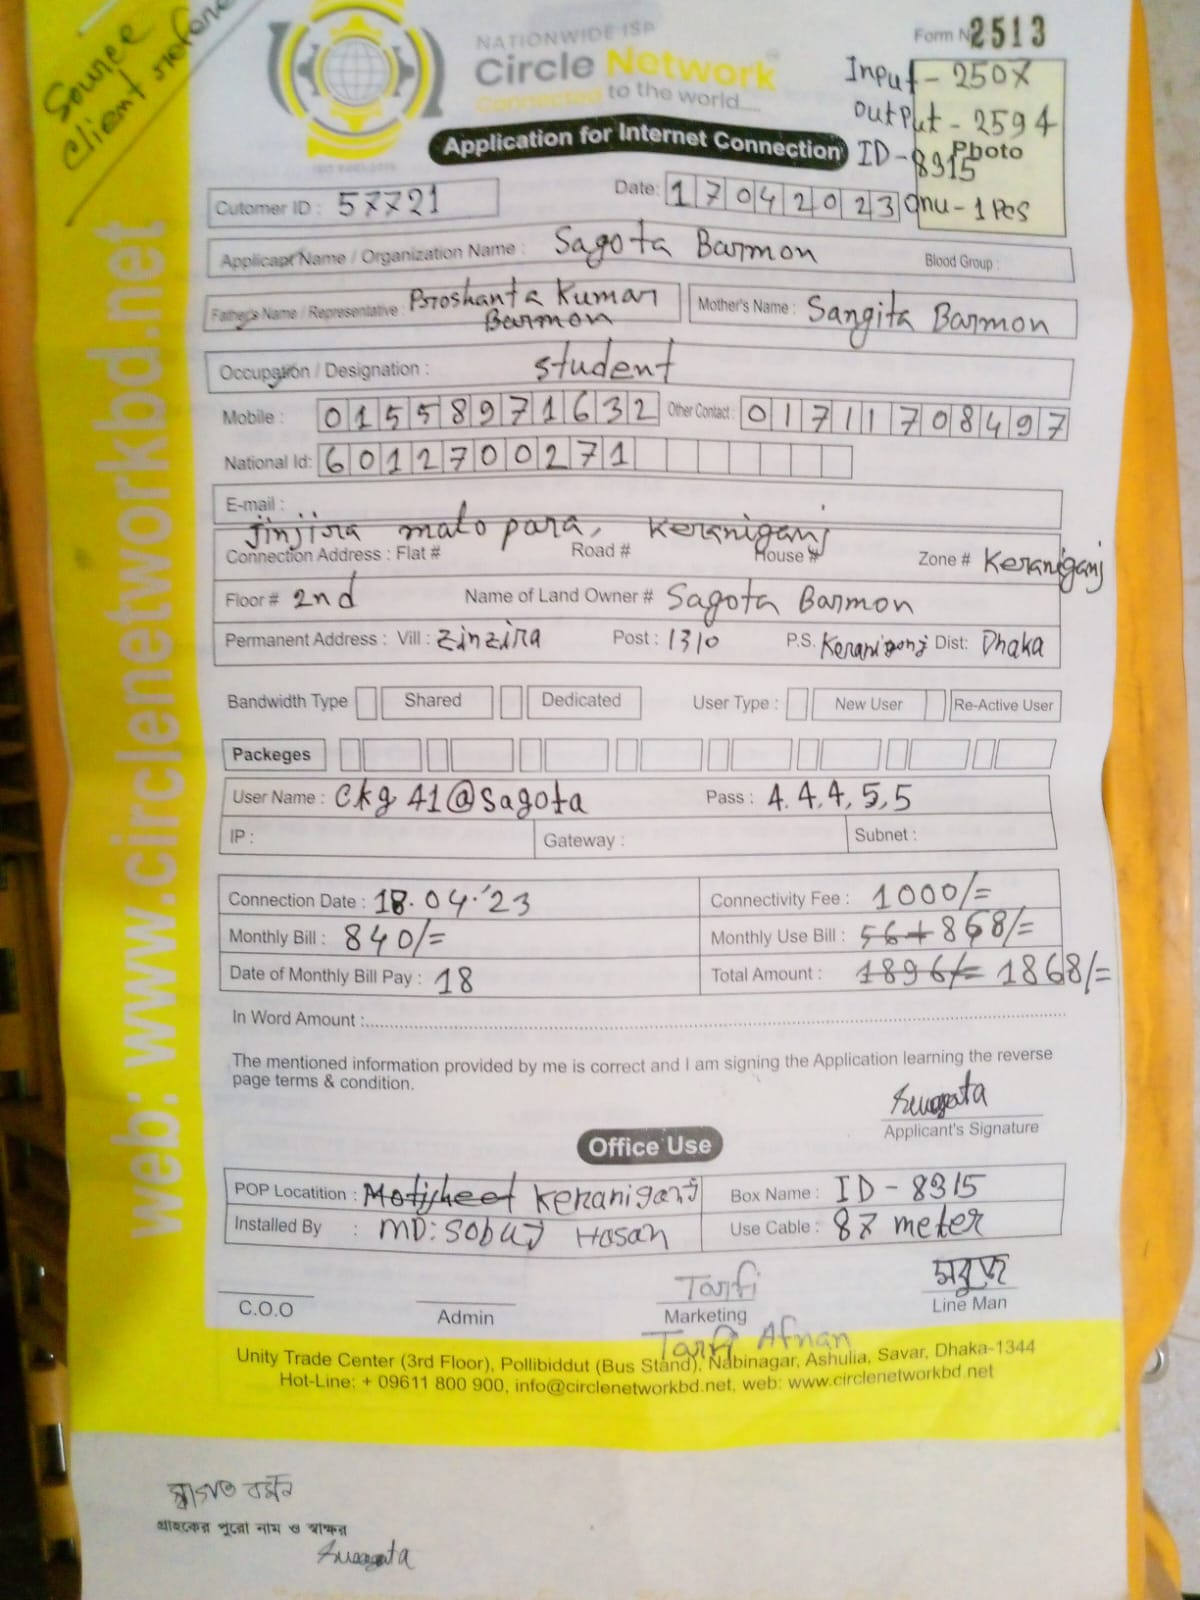 Source
Client refere
NATIONWIDE ISP
Circle Network
Connected to the world....
Form No 2513
Input - 2507
Output - 2594
ID - 8315
Photo
Onu - 1 Pcs
Application for Internet Connection
Cutomer ID : 57721
Date: 17042023
Applicant Name / Organization Name : Sagota Barmon
Blood Group :
Father's Name / Representative : Proshanta Kumar Barmon
Mother's Name : Sangita Barmon
Occupation / Designation : Student
Mobile : 01558971632 Other Contact : 01711708497
National Id: 6012700271
E-mail :
Jinjira malo para, Keraniganj
Connection Address : Flat # Road # House # Zone # Keraniganj
Floor # 2nd Name of Land Owner # Sagota Barmon
Permanent Address : Vill : Zinzira Post : 1310 P.S. Keraniganj Dist: Dhaka
Bandwidth Type Shared Dedicated User Type : New User Re-Active User
Packeges
User Name : Ckg 41@Sagota Pass : 4.4.4,5,5
IP : Gateway : Subnet :
Connection Date : 18.04.'23 Connectivity Fee : 1000/=
Monthly Bill : 840/= Monthly Use Bill : 56+ 868/=
Date of Monthly Bill Pay : 18 Total Amount : 1896/= 1868/=
In Word Amount :
The mentioned information provided by me is correct and I am signing the Application learning the reverse
page terms & condition.
Applicant's Signature
Office Use
POP Locatition : Motijheel Keraniganj Box Name : ID - 8315
Installed By : MD: Sobuj Hosan Use Cable : 87 meter
Tarfi
সবুজ
C.O.O Admin Marketing Line Man
Tarfi Afnan
Unity Trade Center (3rd Floor), Pollibiddut (Bus Stand), Nabinagar, Ashulia, Savar, Dhaka-1344
Hot-Line: + 09611 800 900, info@circlenetworkbd.net, web: www.circlenetworkbd.net
web: www.circlenetworkbd.net
স্বাগত বর্মন
গ্রাহকের পুরো নাম ও স্বাক্ষর